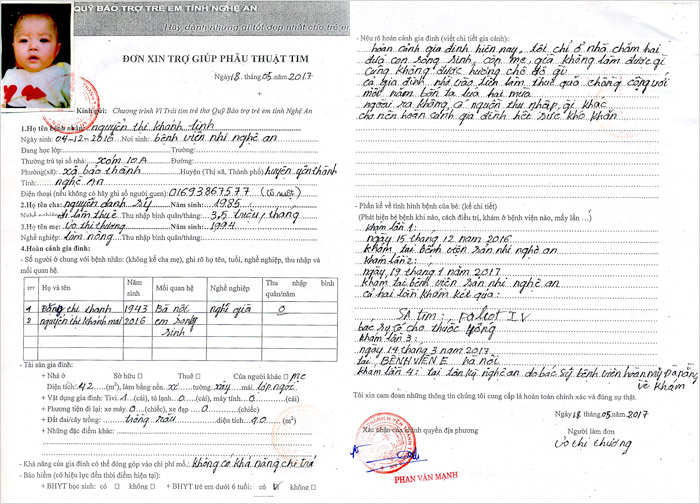 QUỸ BẢO TRỢ TRẺ EM TỈNH NGHỆ AN
Hãy dành những gì tốt đẹp nhất cho trẻ em
ĐƠN XIN TRỢ GIÚP PHẪU THUẬT TIM
Ngày 18 tháng 05 năm 2017
Kính gửi: Chương trình Vì Trái tim trẻ thơ Quỹ Bảo trợ trẻ em tỉnh Nghệ An
1.Họ tên bệnh nhân: nguyễn thị khánh linh
Ngày sinh: 04-12-2016 Nơi sinh: bệnh viện nhi nghệ an
Đang học lớp: Trường:
Thường trú tại số nhà: xóm 10A Đường:
Phường(xã): xã bảo thành Huyện (Thị xã, Thành phố) huyện yên thành
Tỉnh: nghệ An
Điện thoại (nếu không có hãy ghi số người quen): 01693867577
2.Họ tên cha: nguyễn danh sỹ Năm sinh: 1985
Nghề nghiệp: đi làm thuê Thu nhập bình quân/tháng: 3,5 triệu / tháng
3.Họ tên mẹ: võ thị thương Năm sinh: 1994
Nghề nghiệp: làm nông Thu nhập bình quân/tháng:
4.Hoàn cảnh gia đình:
- Số người ở chung với bệnh nhân: (không kể cha mẹ), ghi rõ họ tên, tuổi, nghề nghiệp, thu nhập và
mối quan hệ.
STT Họ và tên Năm sinh Mối quan hệ Nghề nghiệp Thu nhập bình quân/năm
1 thị thanh 1943 Bà nội nghỉ già 0
2 nguyễn thị khánh mai 2016 em song sinh
- Tài sản gia đình:
+ Nhà ở Sở hữu □ Thuê □ Của người khác □ mẹ
Diện tích: 42 (m²), làm bằng nền: x tường: xây mái: lợp ngói
+ Vật dụng gia đình: Tivi: 1 (cái), tủ lạnh: 0 (cái), máy tính: 0 (cái)
+ Phương tiện đi lại: xe máy: 0 (chiếc), xe đạp 0 (chiếc)
+ Đất đai/cây trồng: trồng rau diện tích: 90 (m²)
+ Những đặc điểm khác:
- Khả năng của gia đình có thể đóng góp vào chi phí mổ: không có khả năng chi trả
- Bảo hiểm (có hiệu lực đến thời điểm hiện tại):
+ BHYT học sinh: có □ không □ + BHYT trẻ em dưới 6 tuổi: có không □
- Nêu rõ hoàn cảnh gia đình (viết chi tiết gia cảnh):
hoàn cảnh gia đình hiện nay, tôi chỉ ở nhà chăm hai
đứa con song sinh, còn mẹ già không làm được gì
cũng không được hưởng chế độ gì
cả gia đình nhờ vào tiền làm thuê của chồng cộng với
một năm bán ta lúa hai mùa
ngoài ra không có nguồn thu nhập gì khác
cho nên hoàn cảnh gia đình hết sức khó khăn
- Phần kể về tình hình bệnh của bé: (kể chi tiết)
(Phát hiện bé bệnh khi nào, cách điều trị, khám ở bệnh viện nào, mấy lần ...)
khám lần 1:
ngày 15 tháng 12 năm 2016
khám tại bệnh viện sản nhi nghệ an
khám lần 2:
ngày, 19 tháng 1 năm 2017
khám tại bệnh viện sản nhi nghệ an
cả hai lần khám kết quả:
SA tim: Fallot IV
bác sỹ có cho thuốc uống
khám lần 3:
ngày 14 tháng 3 năm 2017
tại BỆNH VIỆN E hà nội
khám lần 4: tại tân kỳ nghệ an do bác sỹ bệnh viện hoàn mỹ Đà nẵng
về khám
Tôi xin cam đoan những thông tin chúng tôi cung cấp là hoàn toàn chính xác và đúng sự thật.
Ngày 18 tháng 05 năm 2017
Xác nhận của chính quyền địa phương Người làm đơn
võ thị thương
PHAN VĂN MẠNH